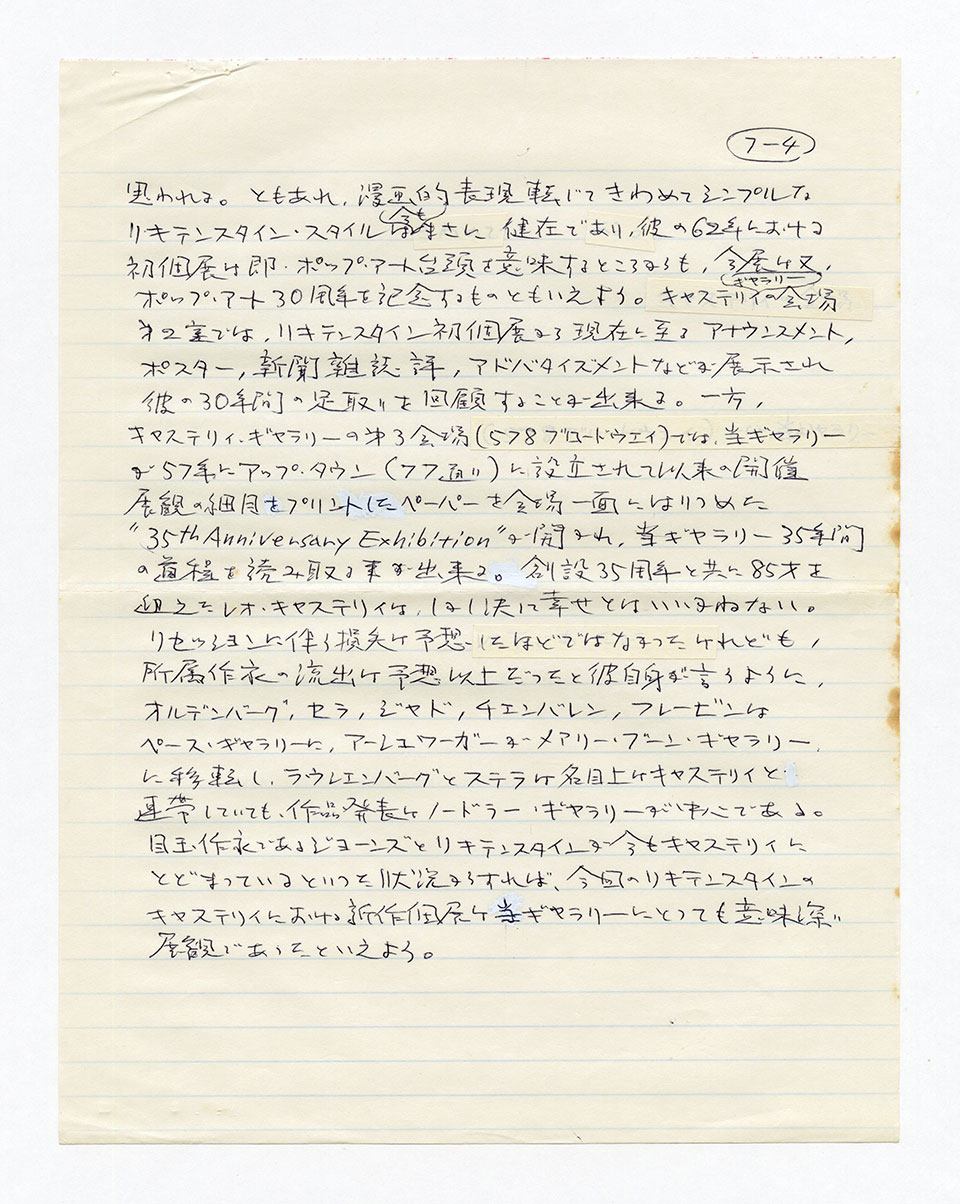 7-4
思われる。ともあれ,漫画的表現転じてきわめてシンプルな
リキテンスタイン・スタイルは今もまさに健在であり,彼の62年における
初個展は即・ポップ・アート台頭を意味するところからも,今展は又,
ポップ・アート30周年を記念するものともいえよう。キャステリィのギャラリー会場
第2室では,リキテンスタイン初個展から現在に至るアナウンスメント,
ポスター,新聞雑誌評,アドバタイズメントなどが展示され
彼の30年間の足取りを回顧することが出来る。一方,
キャステリィ・ギャラリーの第3会場(578ブロードウエイ)では,当ギャラリー
が57年にアップ・タウン(77通り)に設立されて以来の開催
展観の細目をプリントしたペーパーを会場一面にはりつめた
"35th Anniversary Exhibition"が開かれ,当ギャラリー35年間
の道程を読み取る事が出来る。創設35周年と共に85才を
迎えたレオ・キャステリィは,しかし決して幸せとはいいかねない。
リセッションに伴う損失は予想したほどではなかったけれども,
所属作家の流出は予想以上だったと彼自身が言うように,
オルデンバーグ,セラ,ジャド,チェンバレン,フレービンは
ペース・ギャラリーに,アーシュワーガーがメアリー・ブーン・ギャラリー
に移転し,ラウシェンバーグとステラは名目上はキャステリィと
連帯していても,作品発表はノードラー・ギャラリーが中心である。
目玉作家であるジョーンズとリキテンスタインが今もキャステリィに
とどまっているといった状況からすれば,今回のリキテンスタインの
キャステリィにおける新作個展は当ギャラリーにとっても意味深い
展観であったといえよう。